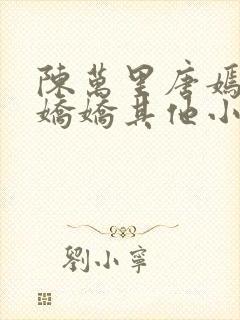 陳萬里唐嫣
嬌嬌其他小
劉小寧